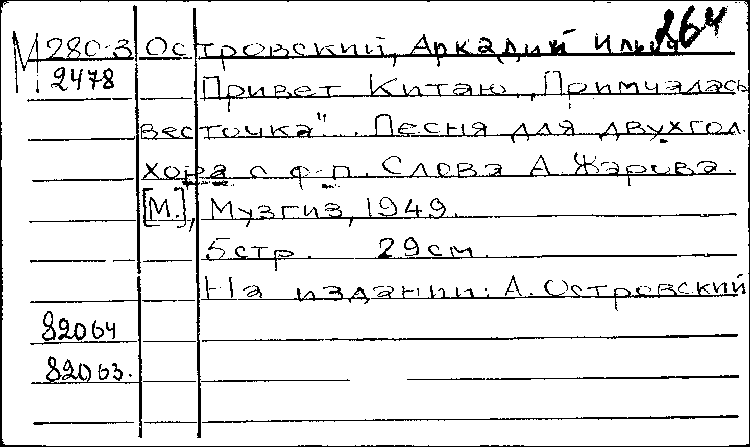 М 280-3 Островский, Аркадий Ильич 264
2478 Привет Китаю „Примчалась
весточка". Песня для двухгол.
хора с ф-п. Слова А. Жарова.
[М.], Музгиз, 1949.
5 стр. 29 см.
На издании: А. Островский
82064
82063.